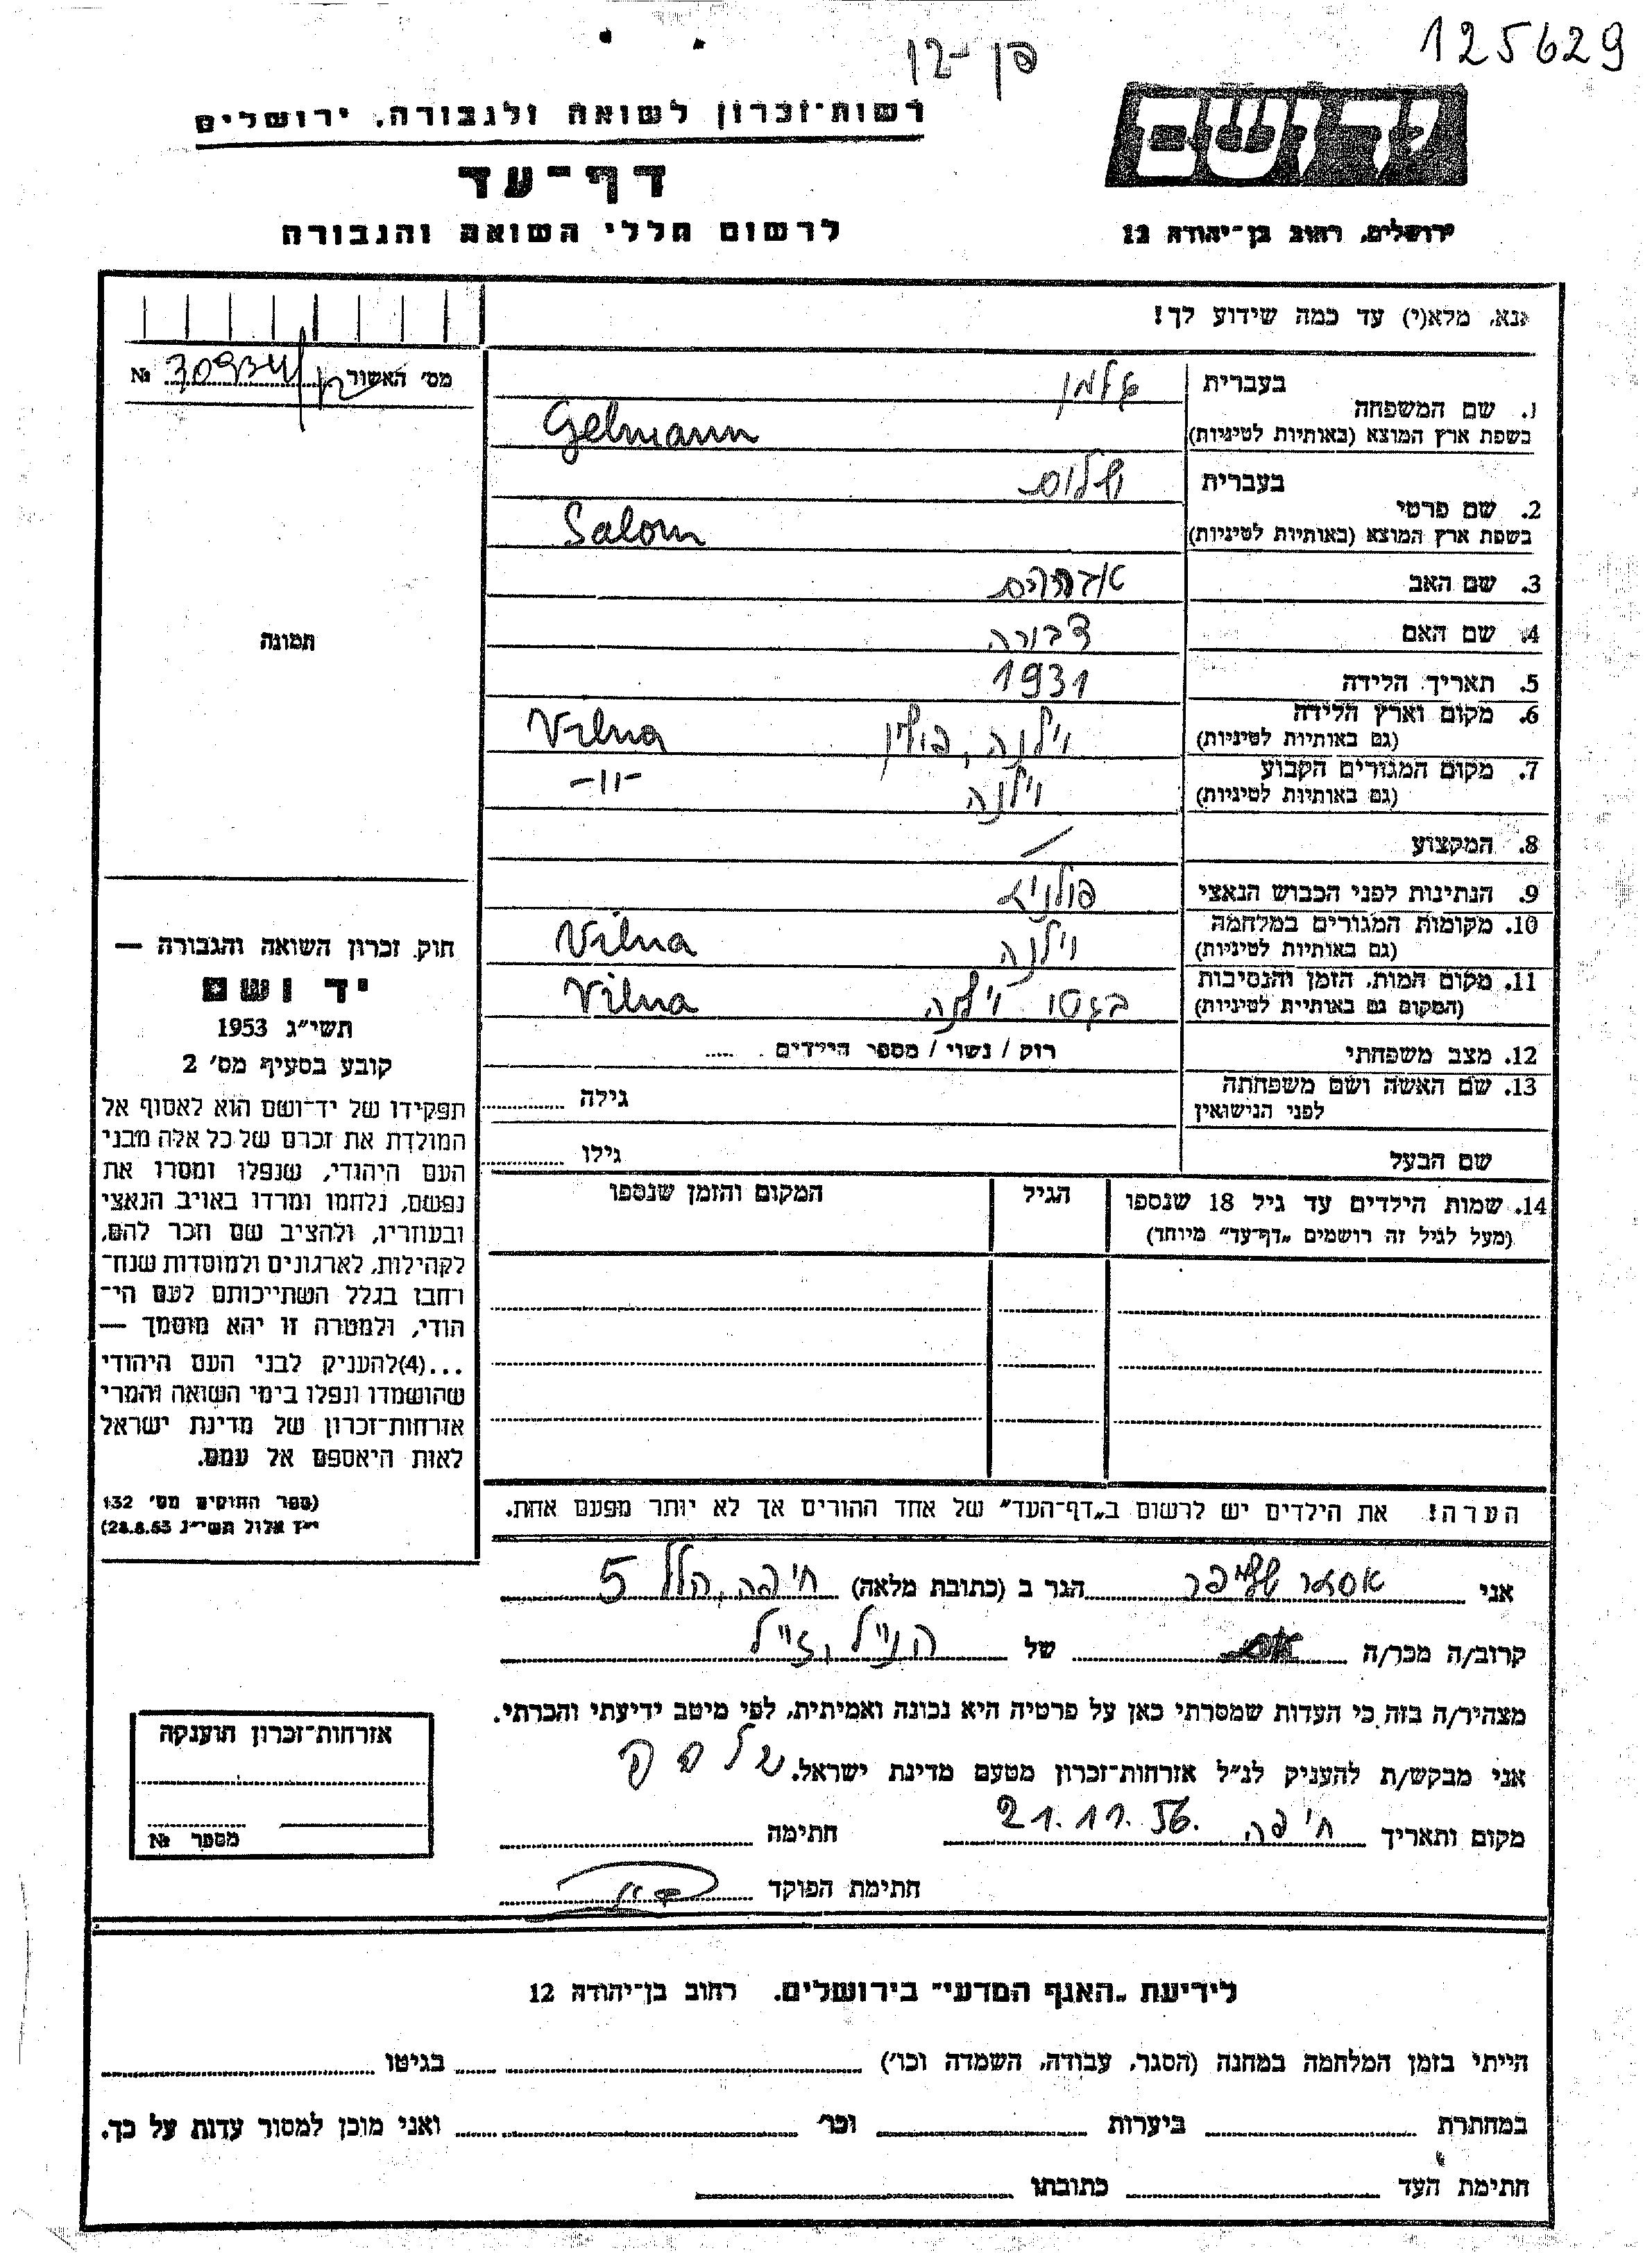 125629
רשות־זכרון לשואה ולגבורה, ירושלים
יד ושם
דף־עד
לרשום חללי השואה והגבורה
ירושלים, רחוב בן־יהודה 12
אנא, מלא(י) עד כמה שידוע לך!
מס׳ האשור № 30934
1. שם המשפחה
בעברית גלמן
בשפת ארץ המוצא (באותיות לטיניות) Gelmann
2. שם פרטי
בעברית שלום
בשפת ארץ המוצא (באותיות לטיניות) Salom
3. שם האב אברהם
4. שם האם דבורה
5. תאריך הלידה 1931
6. מקום וארץ הלידה
(גם באותיות לטיניות) וילנה, פולין Vilna
7. מקום המגורים הקבוע
(גם באותיות לטיניות) וילנה -"-
8. המקצוע /
9. הנתינות לפני הכבוש הנאצי פולנית
10. מקומות המגורים במלחמה
(גם באותיות לטיניות) וילנה Vilna
11. מקום המות, הזמן והנסיבות
(המקום גם באותיות לטיניות) בגטו וילנה Vilna
12. מצב משפחתי רוק / נשוי / מספר הילדים .....
13. שם האשה ושם משפחתה
לפני הנישואין גילה
שם הבעל גילו
14. שמות הילדים עד גיל 18 שנספו
(מעל לגיל זה רושמים „דף־עד״ מיוחד)
הגיל
המקום והזמן שנספו
תמונה
חוק זכרון השואה והגבורה —
יד ושם
תשי״ג 1953
קובע בסעיף מס׳ 2
תפקידו של יד־ושם הוא לאסוף אל
המולדת את זכרם של כל אלה מבני
העם היהודי, שנפלו ומסרו את
נפשם, נלחמו ומרדו באויב הנאצי
ובעוזריו, ולהציב שם וזכר להם,
לקהילות, לארגונים ולמוסדות שנח־
רחבו בגלל השתייכותם לעם הי־
הודי, ולמטרה זו יהא מוסמך —
...(4)להעניק לבני העם היהודי
שהושמדו ונפלו בימי השואה והמרי
אזרחות־זכרון של מדינת ישראל
לאות היאספם אל עמם.
(ספר החוקים מס׳ 132
י״ז אלול תשי״ג 28.8.53)
הערה! את הילדים יש לרשום ב„דף־העד״ של אחד ההורים אך לא יותר מפעם אחת.
אני אסתר הגר ב (כתובת מלאה) חיפה, הלל 5
קרוב/ה מכר/ה של הנ״ל ז״ל
מצהיר/ה בזה כי העדות שמסרתי כאן על פרטיה היא נכונה ואמיתית, לפי מיטב ידיעתי והכרתי.
אני מבקש/ת להעניק לנ״ל אזרחות־זכרון מטעם מדינת ישראל.
מקום ותאריך חיפה 21.11.56. חתימה
חתימת הפוקד
אזרחות־זכרון תוענקה
מספר №
לידיעת „האגף המדעי״ בירושלים. רחוב בן־יהודה 12
הייתי בזמן המלחמה במחנה (הסגר, עבודה, השמדה וכו׳) בגיטו
במחתרת ביערות וכו׳ ואני מוכן למסור עדות על כך.
חתימת העד כתובתו